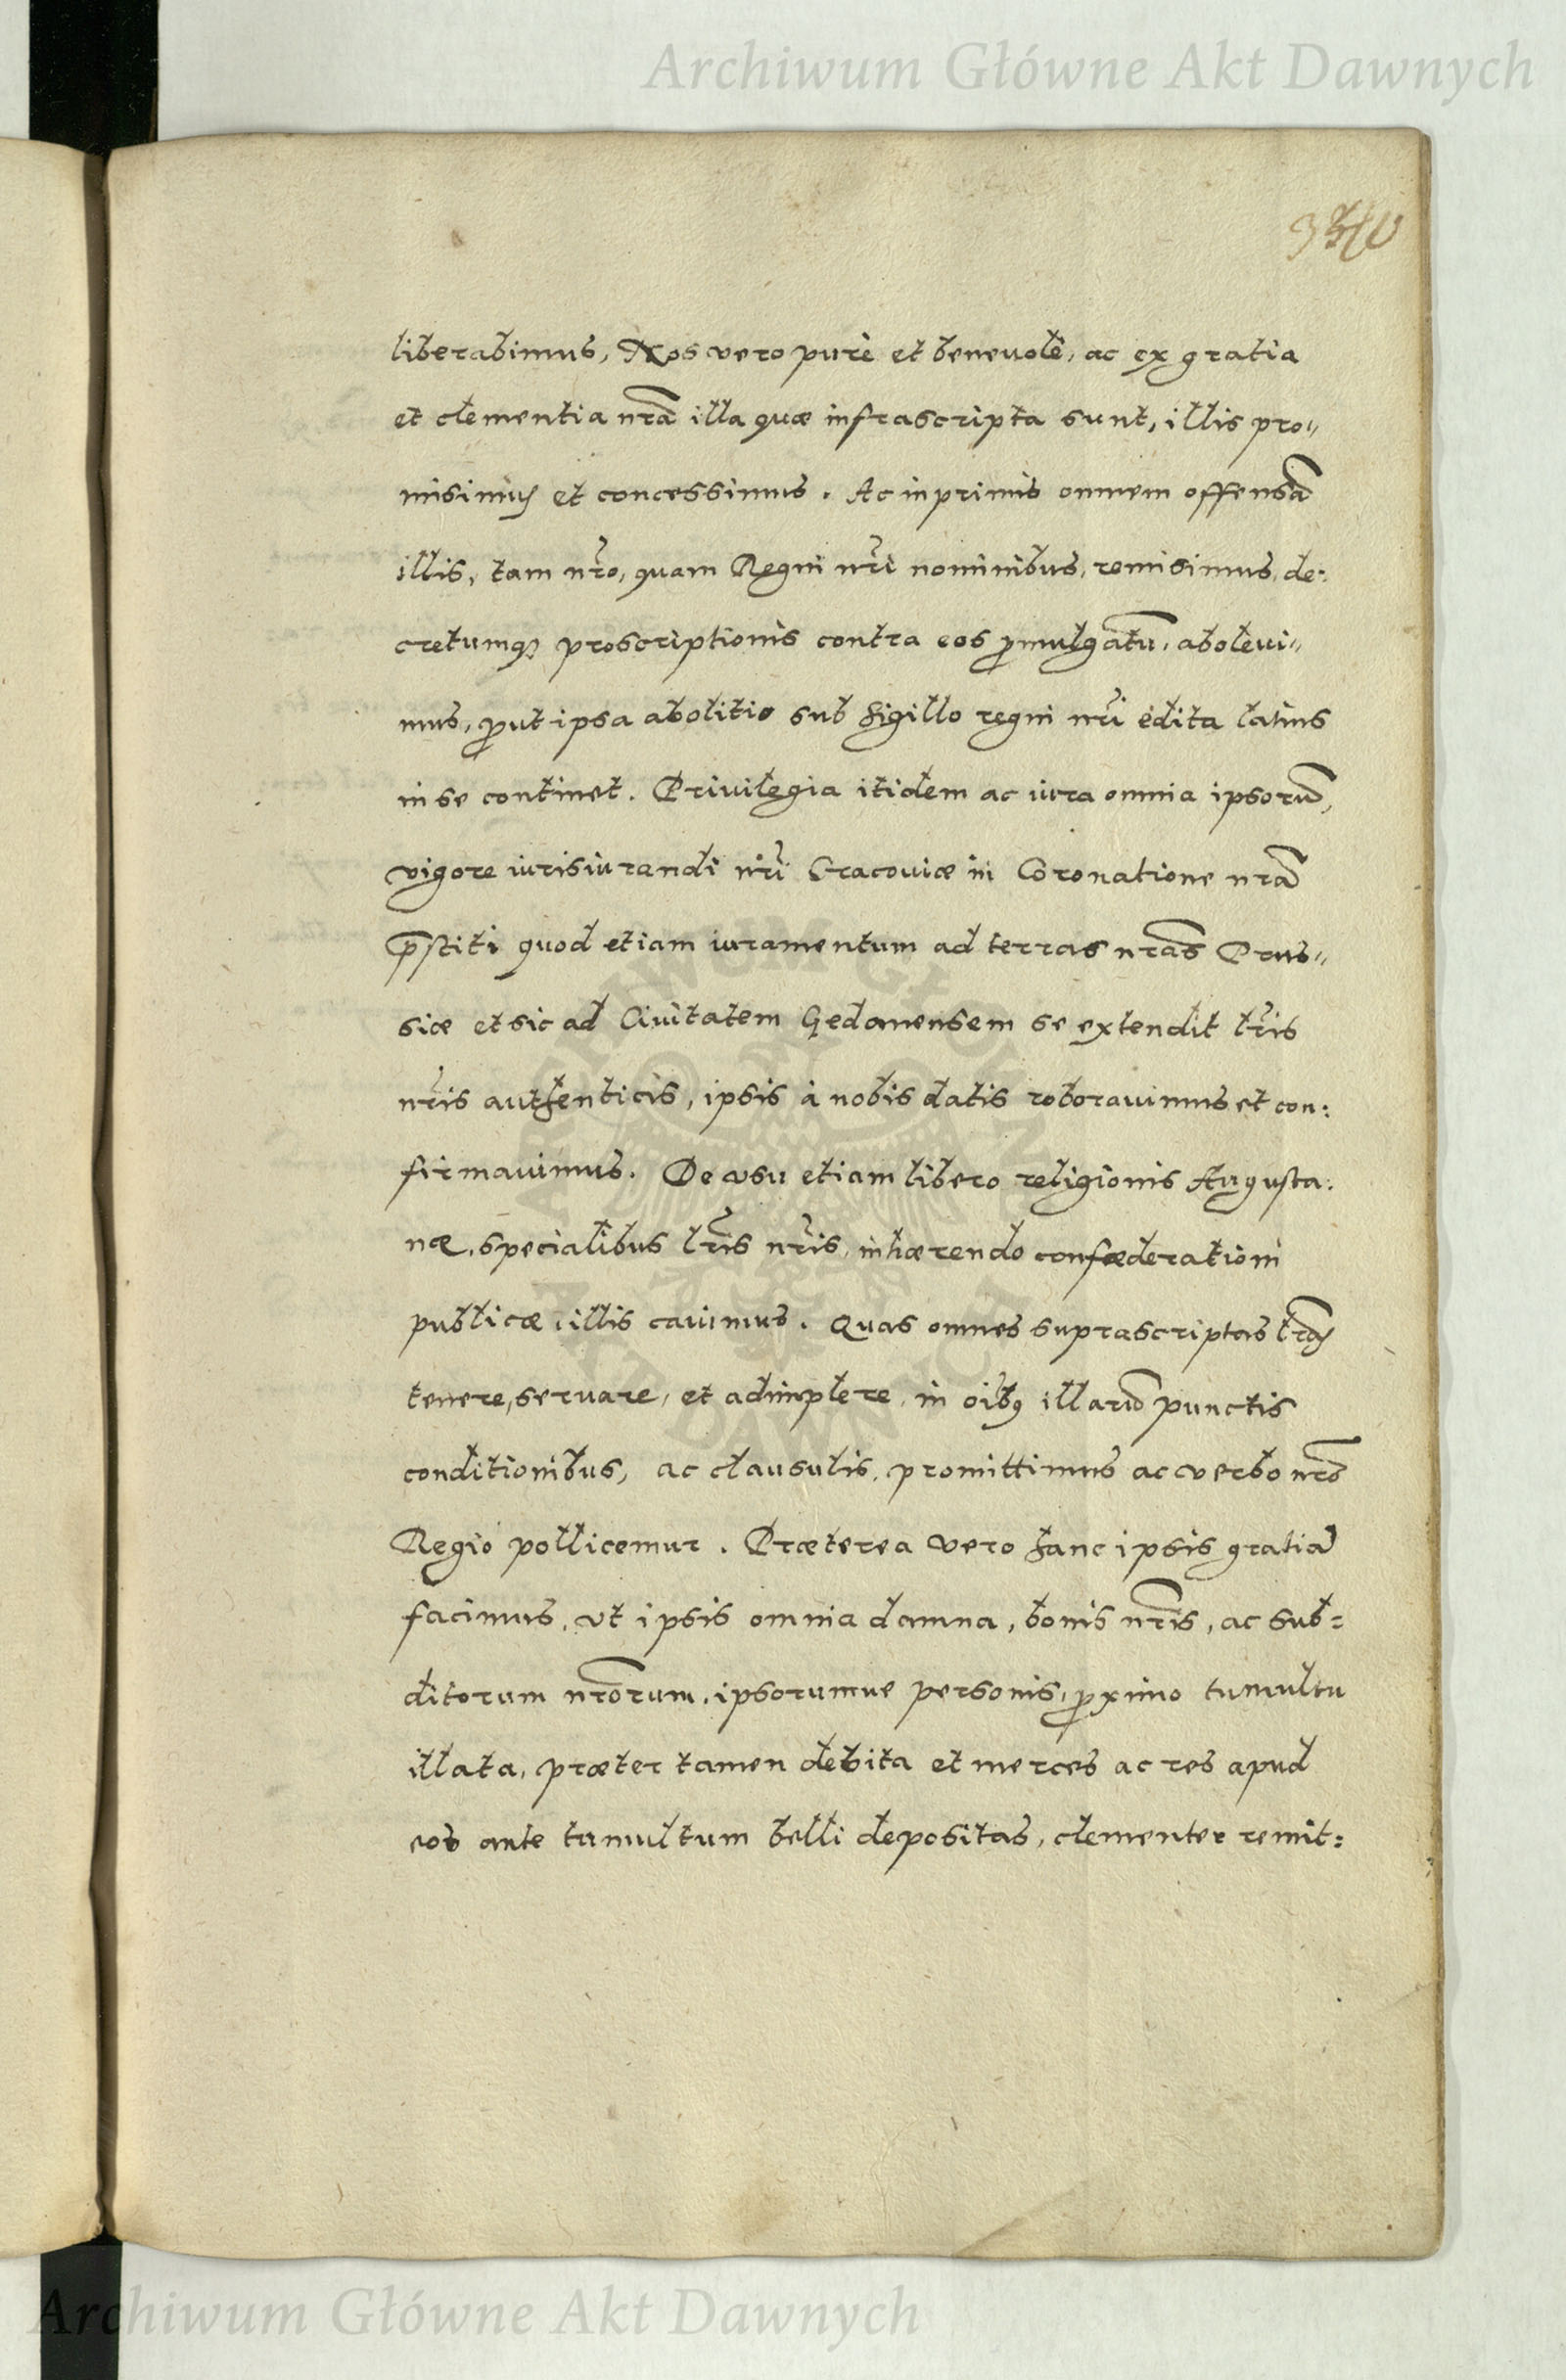 Archiwum Główne Akt Dawnych
liberabimus, Nos vero purè et beneuolè, ac ex gratia
et clementia nrã illa quæ infrascripta sunt, illis pro„
misimus et concessimus. Ac inprimis omnem offensã
illis, tam nro, quam Regni nri nominibus, remisimus, de:
cretumq₃ proscriptionis contra eos ꝓmulgatũ, aboleui„
mus, ꝓut ipsa abolitio sub sigillo regni nri edita latius
in se continet. Priuilegia itidem ac iura omnia ipsorũ,
vigore iurisiurandi nri Cracouiæ in Coronatione nrã
p̃stiti quod etiam iuramentum ad terras nrãs Prus„
siæ et sic ad Ciuitatem Gedanensem se extendit lris
nris authenticis, ipsis à nobis datis roborauimus et con:
firmauimus. De vsu etiam libero religionis Augusta:
næ, specialibus lris nris, inhærendo confæderationi
publicæ, illis cauimus. Quas omnes suprascriptas lrãs
tenere, seruare, et adimplere, in oĩbꝰ illarũ punctis
conditionibus, ac clausulis, promittimus ac verbo nrõ
Regio pollicemur. Præterea vero hanc ipsis gratiã
facimus, vt ipsis omnia damna, bonis nris, ac sub=
ditorum nrõrum, ipsorumue personis, ꝓximo tumultu
illata, præter tamen debita et merces ac res apud
eos ante tumultum belli depositas, clementer remit:
Archiwum Główne Akt Dawnych